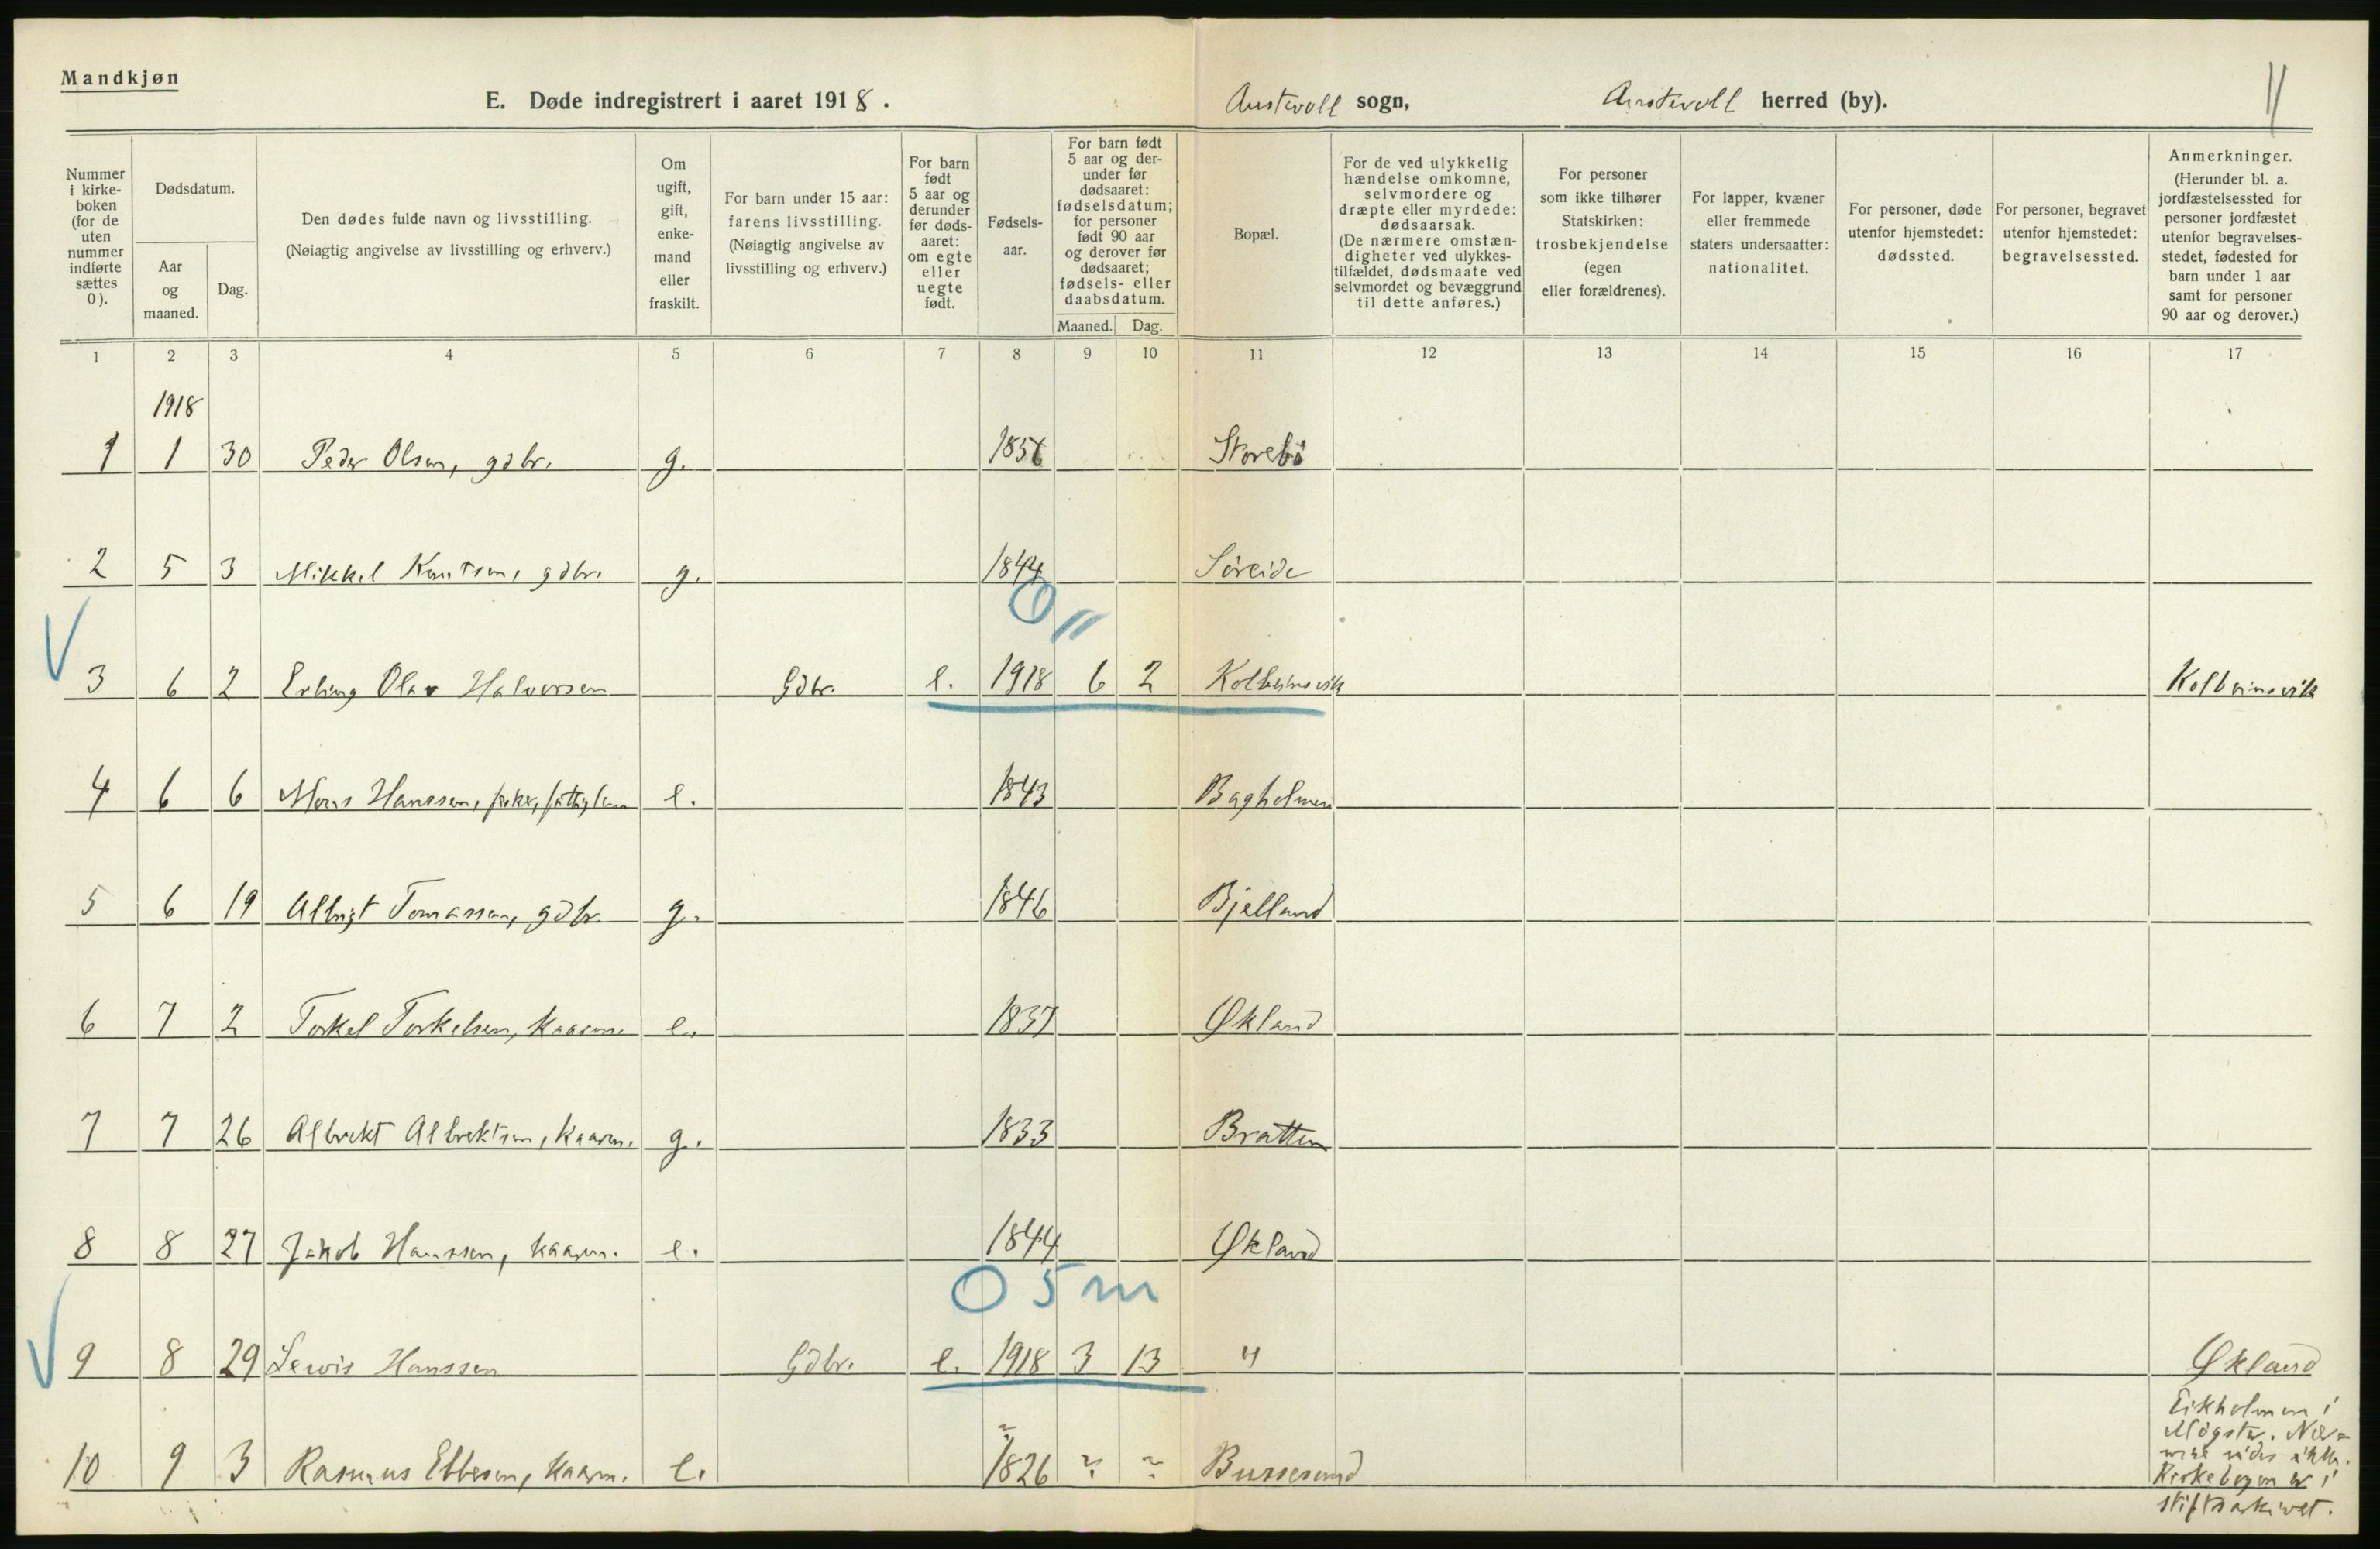 Mandkjøn
E. Døde indregistrert i aaret 1918. Austevoll sogn, Austevoll herred (by). 11
Nummer i kirkeboken (for de uten nummer indførte sættes 0).
Dødsdatum.
Aar og maaned.
Dag.
Den dødes fulde navn og livsstilling.
(Nøiagtig angivelse av livsstilling og erhverv.)
Om ugift, gift, enkemand eller fraskilt.
For barn under 15 aar: farens livsstilling.
(Nøiagtig angivelse av livsstilling og erhverv.)
For barn født 5 aar og derunder før dødsaaret: om egte eller uegte født.
Fødselsaar.
For barn født 5 aar og derunder før dødsaaret: fødselsdatum; for personer født 90 aar og derover før dødsaaret; fødsels- eller daabsdatum.
Maaned. Dag.
Bopæl.
For de ved ulykkelig hændelse omkomne, selvmordere og dræpte eller myrdede: dødsaarsak.
(De nærmere omstændigheter ved ulykkestilfældet, dødsmaate ved selvmordet og bevæggrund til dette anføres.)
For personer som ikke tilhører Statskirken: trosbekjendelse (egen eller forældrenes).
For lapper, kvæner eller fremmede staters undersaatter: nationalitet.
For personer, døde utenfor hjemstedet: dødssted.
For personer, begravet utenfor hjemstedet: begravelsessted.
Anmerkninger.
(Herunder bl. a. jordfæstelsessted for personer jordfæstet utenfor begravelsesstedet, fødested for barn under 1 aar samt for personer 90 aar og derover.)
1 2 3 4 5 6 7 8 9 10 11 12 13 14 15 16 17
1918
1 1 30 Peder Olsen, gdbr. g. 1856 Storebø
2 5 3 Mikkel Knutsen, gdbr. g. 1844 Søreide
0 11
3 6 2 Erling Olav Halvorsen Gdbr. e. 1918 6 2 Kolbeinsvik Kolbeinsvik
4 6 6 Mons Hanssen, e. 1843 Bagholmen
5 6 19 Albrigt Tomassen, gdbr. g. 1846 Bjelland
6 7 2 Torkel Torkelsen, kaarm. e. 1837 Økland
7 7 26 Albrekt Albrektsen, kaarm. g. 1833 Bratten
8 8 27 Jakob Hanssen, kaarm. e. 1844 Økland
0 5 m
9 8 29 Lewis Hanssen Gdbr. e. 1918 3 13 " Økland
10 9 3 Rasmus Ebbesen, kaarm. e. ? 1826 ? ? Bussesund
Eikholmen i
Møgster. Nær-
mere vides ikke.
Kirkebogen er i
stiftsarkivet.